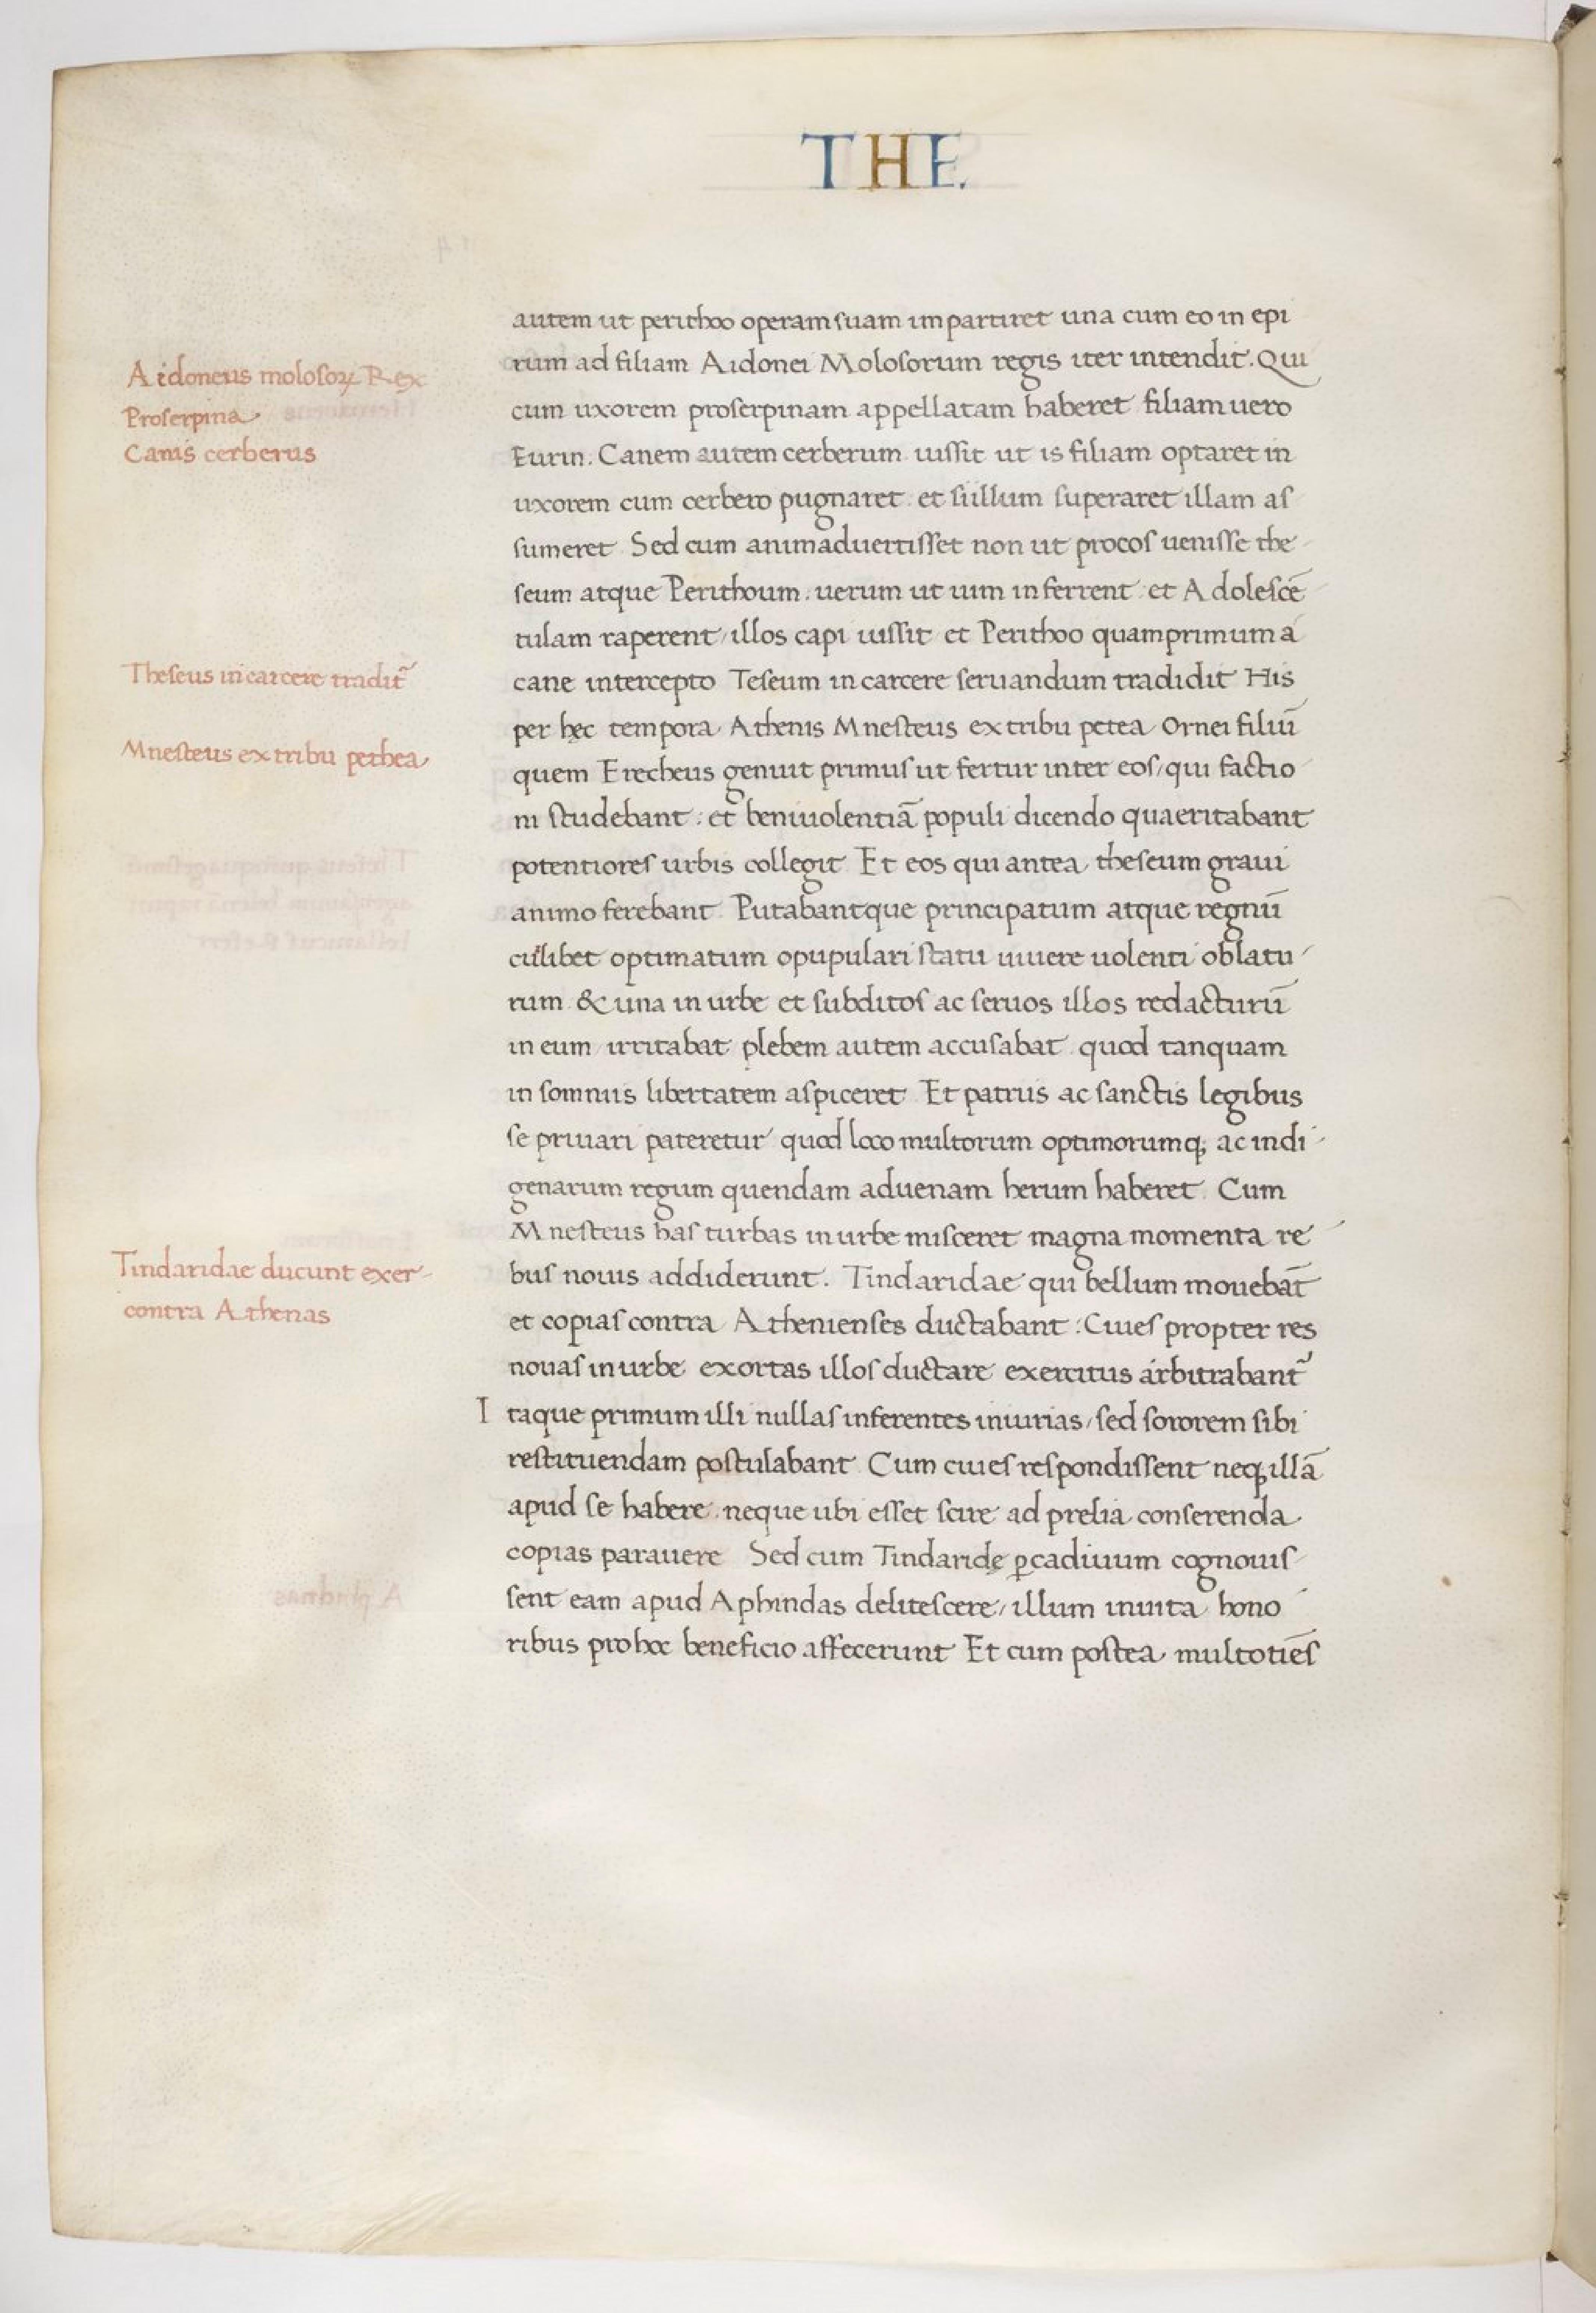 THE.
autem ut perithoo operam suam impartiret una cum eo in epi
rum ad filiam Aidonei Molosorum regis iter intendit. Qui
cum uxorem proserpinam appellatam haberet filiam uero
Eurin. Canem autem cerberum iussit ut is filiam optaret in
uxorem cum cerbero pugnaret: et si illum superaret illam as
sumeret Sed cum animaduertisset non ut procos uenisse the
seum atque Perithoum. uerum ut uim inferrent: et Adolescē
tulam raperent, illos capi iussit et Perithoo quamprimum a
cane intercepto Teseum in carcere seruandum tradidit His
per hęc tempora Athenis Mnesteus ex tribu petea Ornei filiū
quem Erecheus genuit primus ut fertur inter eos, qui factio
ni studebant: et beniuolentiā populi dicendo quaeritabant
potentiores urbis collegit Et eos qui antea theseum graui
animo ferebant Putabantque principatum atque regnū
cuilibet optimatum opupulari statu uiuere uolenti oblatu
rum & una in urbe et subditos ac seruos illos redacturū
in eum irritabat plebem autem accusabat quod tanquam
in somniis libertatem aspiceret Et patriis ac sanctis legibus
se priuari pateretur quod loco multorum optimorumq; ac indi
genarum regum quendam aduenam herum haberet. Cum
Mnesteus has turbas in urbe misceret magna momenta re
bus nouis addiderunt. Tindaridae qui bellum mouebāt
et copias contra Athenienses ductabant: Ciues propter res
nouas in urbe exortas illos ductare exercitus arbitrabant᷑
Itaque primum illi nullas inferentes iniurias, sed sororem sibi
restituendam postulabant Cum ciues respondissent neq; illā
apud se habere neque ubi esset scire ad prelia conserenda
copias parauere Sed cum Tindaridę ꝑcadiuum cognouis
sent eam apud Aphindas delitescere, illum in uita hono
ribus pro hoc beneficio affecerunt Et cum postea multotiēs
Aidoneus molosoꝝ Rex
Proserpina
Canis cerberus
Theseus in carcere tradit᷑
Mnesteus ex tribu pethea
Tindaridae ducunt exer
contra Athenas